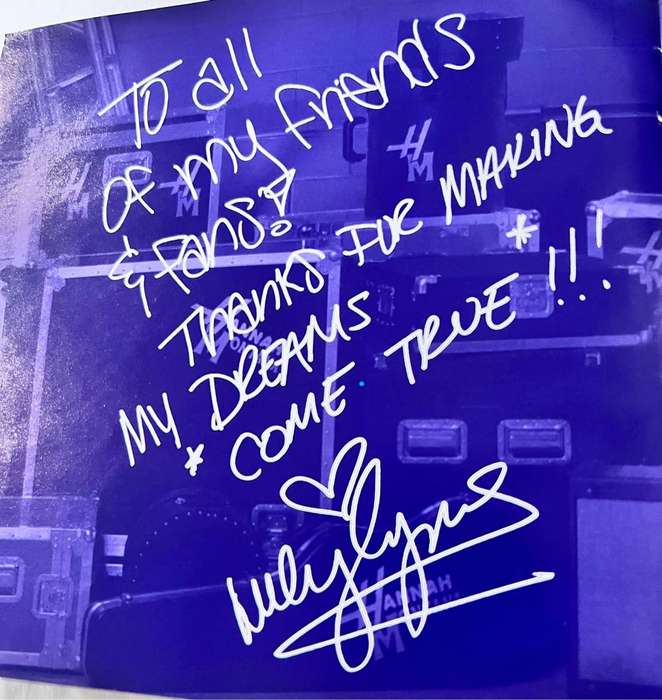 To all
of my friends
& fans!
THANKS FOR MAKING
MY *DREAMS*
*COME TRUE!!!
Miley Cyrus
HM
HM
HM
HM
HANNAH
HANNAH